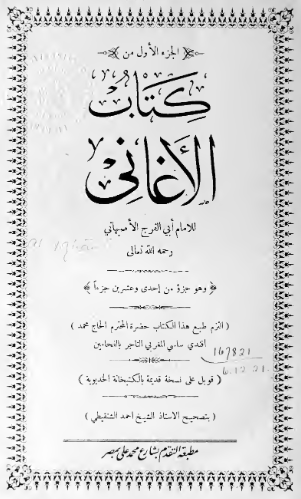 الجزء الأول من
كتاب
الأغاني
للامام أبي الفرج الأصبهاني
رحمه الله تعالى
﴿ وهو جزء من إحدى وعشرين جزءاً ﴾
( التزم طبع هذا الكتاب حضرة المحترم الحاج محمد )
أفندي ساسي المغربي التاجر بالفحامين
( قوبل على نسخة قديمة بالكتبخانة الخديوية )
( بتصحيح الاستاذ الشيخ احمد الشنقيطي )
مطبعة التقدم بشارع محمد علي بمصر
167821
6.12.21.